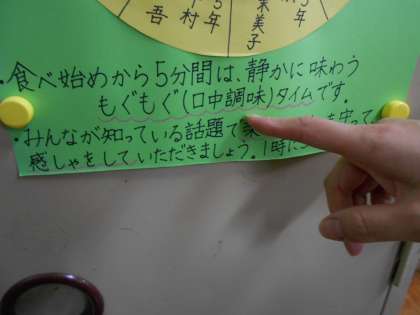 5年
吾
村
5年
美子
・食べ始めから5分間は、静かに味わう
もぐもぐ(口中調味)タイムです.
・みんなが知っている話題で
を守って
感しゃをしていただきましょう.1時に